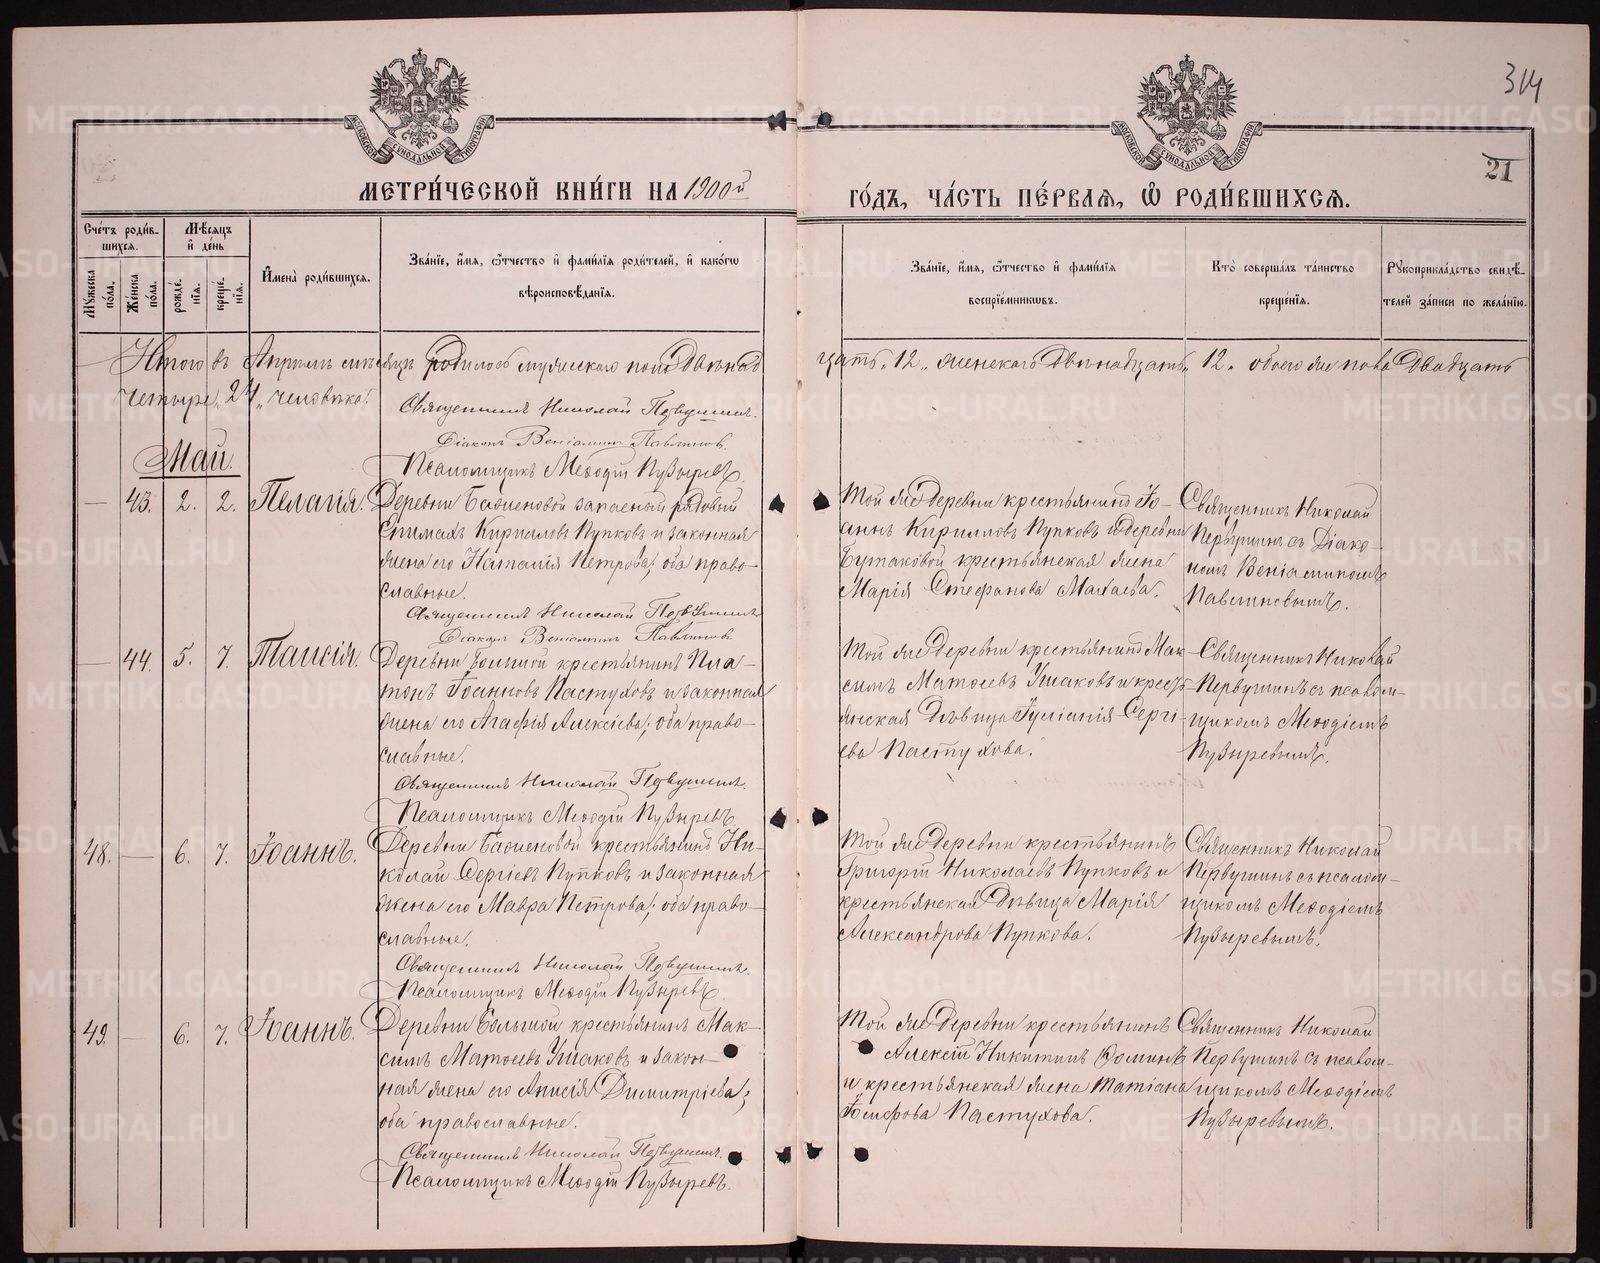 314
21
МОСКОВСКОЙ СѴНОДАЛЬНОЙ ТИПОГРАФІИ
МОСКОВСКОЙ СѴНОДАЛЬНОЙ ТИПОГРАФІИ
МЕТРИ́ЧЕСКОЙ КНИ́ГИ НА 1900й ГО́ДЪ, ЧА́СТЬ ПЕ́РВАЯ, Ѡ҆ РОДИ́ВШИХСЯ.
Сче́тъ роди́в-
шихся.
Му́жеска по́ла.
Же́нска по́ла.
Мѣ́сяцъ и҆ де́нь
рожде́нїя.
креще́нїя.
И҆мена̀ роди́вшихся.
Зва́нїе, и҆́мя, ѻ҆́тчество и҆ фами́лїя роди́телей, и҆ како́гѡ
вѣроисповѣ́данїя.
Зва́нїе, и҆́мя, ѻ҆́тчество и҆ фами́лїя
воспрїе́мникѡвъ.
Кто̀ соверша́лъ та́инство
креще́нїя.
Рꙋкоприкла́дство свидѣ́-
телей за́писи по жела́нїю.
Итого въ Апрѣль мѣсяцъ родилось мужескаго пола двѣнад
цать „12„ женскаго двѣнадцать „12„ обоего же пола двадцать
четыре „24„ человѣка.
Священникъ Николай Первушинъ.
Діаконъ Веніаминъ Павлиновъ.
Псаломщикъ Меѳодій Пузыревъ.
Май.
— 43. 2. 2. Пелагія.
Деревни Баженовой запасный рядовой
Епимахъ Кирилловъ Пупковъ и законная
жена его Наталія Петрова; оба право-
славные.
Священникъ Николай Первушинъ
Діаконъ Веніаминъ Павлиновъ
Той же деревни крестьянинъ Іо-
аннъ Кирилловъ Пупковъ и деревни
Бутаковой крестьянская жена
Марія Стефанова
Священникъ Николай
Первушинъ съ Діако-
номъ Веніаминомъ
Павлиновымъ.
— 44. 5. 7. Таисія.
Деревни Большой крестьянинъ Пла-
тонъ Іоанновъ Пастуховъ и законная
жена его Агафія Алексіева; оба право-
славные.
Священникъ Николай Первушинъ.
Псаломщикъ Меѳодій Пузыревъ.
Той же деревни крестьянинъ Мак-
симъ Матѳеевъ Ушаковъ и кресть-
янская дѣвица Іуліанія Сергі-
ева Пастухова.
Священникъ Николай
Первушинъ съ псалом-
щикомъ Меѳодіемъ
Пузыревымъ.
48. — 6. 7. Іоаннъ.
Деревни Баженовой крестьянинъ Ни-
колай Сергіевъ Пупковъ и законная
жена его Мавра Петрова; оба право-
славные.
Священникъ Николай Первушинъ.
Псаломщикъ Меѳодій Пузыревъ.
Той же деревни крестьянинъ
Григорій Николаевъ Пупковъ и
крестьянская дѣвица Марія
Александрова Пупкова.
Священникъ Николай
Первушинъ съ псалом-
щикомъ Меѳодіемъ
Пузыревымъ.
49. — 6. 7. Іоаннъ.
Деревни Большой крестьянинъ Мак-
симъ Матѳеевъ Ушаковъ и закон-
ная жена его Анисія Димитріева;
оба православные.
Священникъ Николай Первушинъ.
Псаломщикъ Меѳодій Пузыревъ.
Той же деревни крестьянинъ
Алексій Никитинъ Ѳоминъ
и крестьянская жена Татіана
Іосифова Пастухова.
Священникъ Николай
Первушинъ съ псалом-
щикомъ Меѳодіемъ
Пузыревымъ.
METRIKI.GASO-URAL.RU